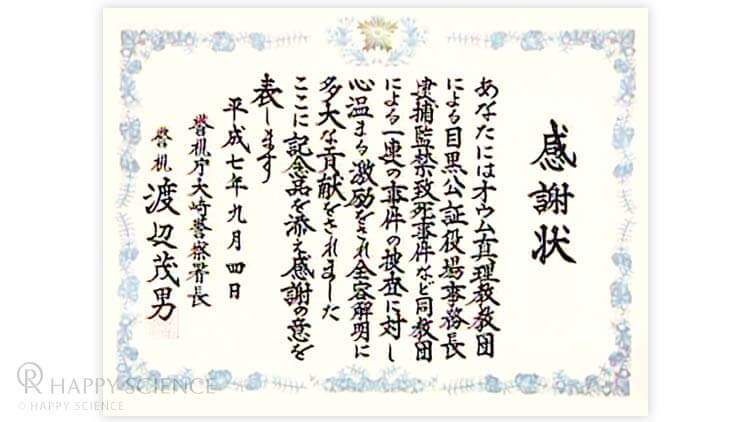 感謝状
あなたにはオウム真理教教団
による目黒公証役場事務長
逮捕監禁致死事件など同教団
による一連の事件の捜査に対し
心温まる激励をされ全容解明に
多大な貢献をされました
ここに記念品を添え感謝の意を
表します
平成七年九月四日
警視庁大崎警察署長
警視 渡辺茂男
HAPPY SCIENCE
© HAPPY SCIENCE